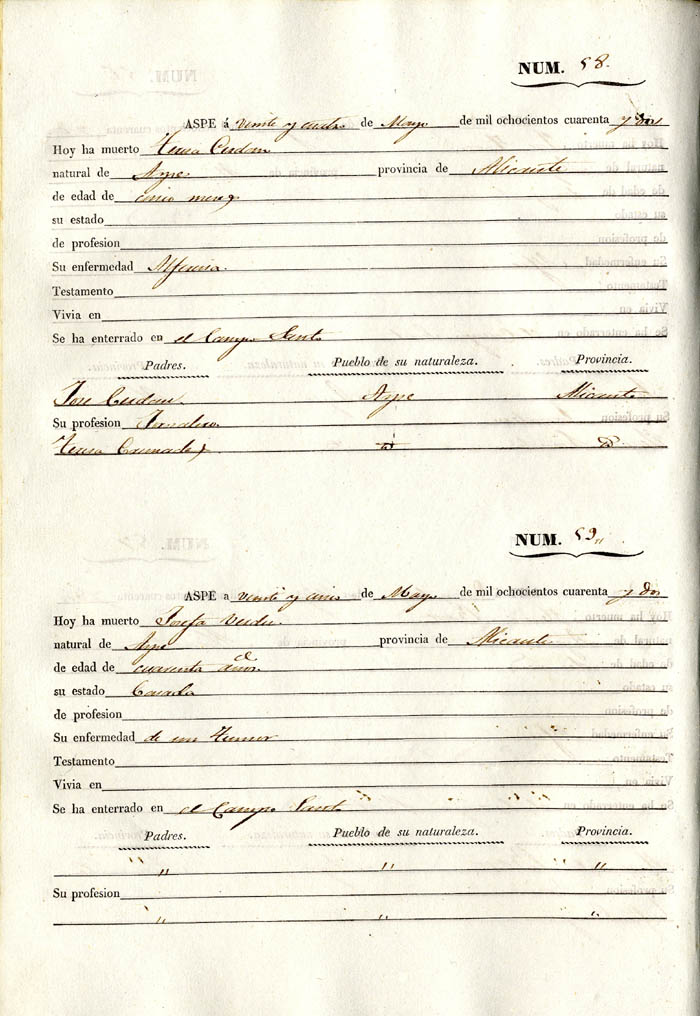 NUM. 58.
ASPE á veinte y cuatro de Mayo de mil ochocientos cuarenta y dos
Hoy ha muerto Teresa Cerdan
natural de Aspe provincia de Alicante
de edad de cinco meses
su estado
de profesion
Su enfermedad Alferecia.
Testamento
Vivia en
Se ha enterrado en el Campo Santo
Padres. Pueblo de su naturaleza. Provincia.
Jose Cerdan Aspe Alicante
Su profesion Jornalero
Teresa
NUM. 59
ASPE a veinte y cinco de Mayo de mil ochocientos cuarenta y dos
Hoy ha muerto Josefa Verdu
natural de Aspe provincia de Alicante
de edad de cuarenta años
su estado Casada
de profesion
Su enfermedad de un Tumor
Testamento
Vivia en
Se ha enterrado en el Campo Santo
Padres. Pueblo de su naturaleza. Provincia.
" " "
Su profesion
" " "